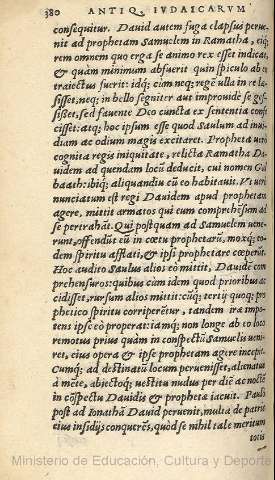 380 ANTIQ. IVDAICARVM
consequitur. Dauid autem fuga elapsus perue-
nit ad prophetam Samuelem in Ramatha, eiq;
rem omnem quo erga se animo rex esset indicat,
& quàm minimum abfuerit quin spiculo ab eo
traiectus fuerit: idq; cùm neq; rege ulla in re læ-
sisset, neq; in bello segniter aut improuide se ges-
sisset, sed fauente Deo cuncta ex sententia confe-
cisset: atq; hoc ipsum esse quod Saulum ad inui-
diam ac odium magis excitaret. Propheta uerò
cognita regis iniquitate, relicta Ramatha Da-
uidem ad quendam locũ deducit, cui nomen Gal
baath: ibiq; aliquandiu cũ eo habitauit. Vt uerò
nunciatum est regi Dauidem apud prophetam
agere, mittit armatos qui eum comprehẽsum ad
se pertrahãt. Qui postquam ad Samuelem uene-
runt, offendũt eũ in cœtu prophetarũ, moxq; eo-
dem spiritu afflati, & ipsi prophetare cœperũt.
Hoc audito Saulus alios eò mittit, Dauidẽ com-
prehensuros: quibus cùm idem quod prioribus ac
cidisset, rursum alios mittit: cũq; tertij quoq; pro
phetico spiritu corriperẽtur, tandem ira impo-
tens ipse eò properat: iamq; non longe ab eo loco
remotus prius quàm in conspectũ Samuelis ueni-
ret, eius opera & ipse prophetam agere incepit.
Cumq; ad destinatũ locum peruenisset, alienatus
à mẽte, abiectoq; uestitu nudus per diẽ ac noctẽ
in cõspectu Dauidis & propheta iacuit. Paulò
pòst ad Ionathã Dauid peruenit, multa de patris
eius insidijs conquerẽs, quòd se nihil tale meritum
totis
Ministerio de Educación, Cultura y Deporte